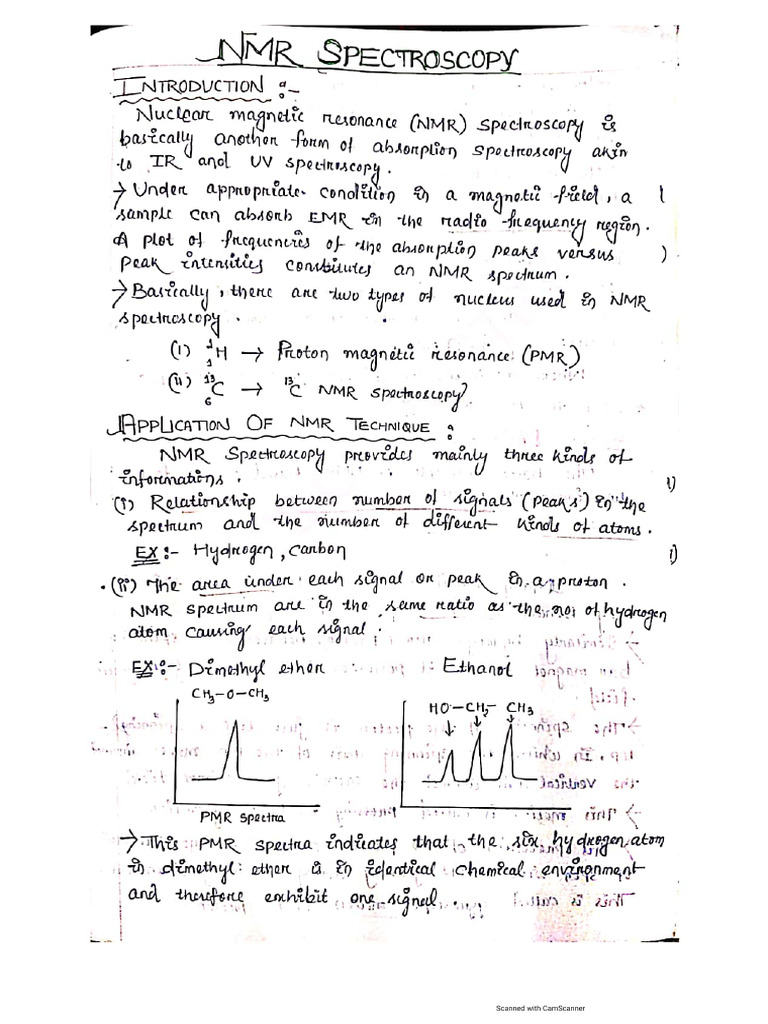 NMR SPECTROSCOPY
INTRODUCTION :-
Nuclear magnetic resonance (NMR) spectroscopy is
basically another form of absorption spectroscopy akin
to IR and UV spectroscopy.
→ Under appropriate condition in a magnetic field, a
sample can absorb EMR in the radio frequency region.
A plot of frequencies of the absorption peaks versus
peak intensities constitutes an NMR spectrum.
→ Basically, there are two types of nucleus used in NMR
spectroscopy.
(i) ¹₁H → Proton magnetic resonance (PMR)
(ii) ¹³₆C → ¹³C NMR spectroscopy
APPLICATION OF NMR TECHNIQUE :
NMR Spectroscopy provides mainly three kinds of
informations.
(i) Relationship between number of signals (peaks) in the
spectrum and the number of different kinds of atoms.
EX :- Hydrogen, carbon
(ii) The area under each signal or peak in a proton.
NMR spectrum are in the same ratio as the no. of hydrogen
atom causing each signal.
EX :- Dimethyl ether Ethanol
CH₃-O-CH₃
HO-CH₂- CH₃
PMR spectra
→ This PMR spectra indicates that the six hydrogen atom
in dimethyl ether is in identical chemical environment
and therefore exhibit one signal.
Scanned with CamScanner